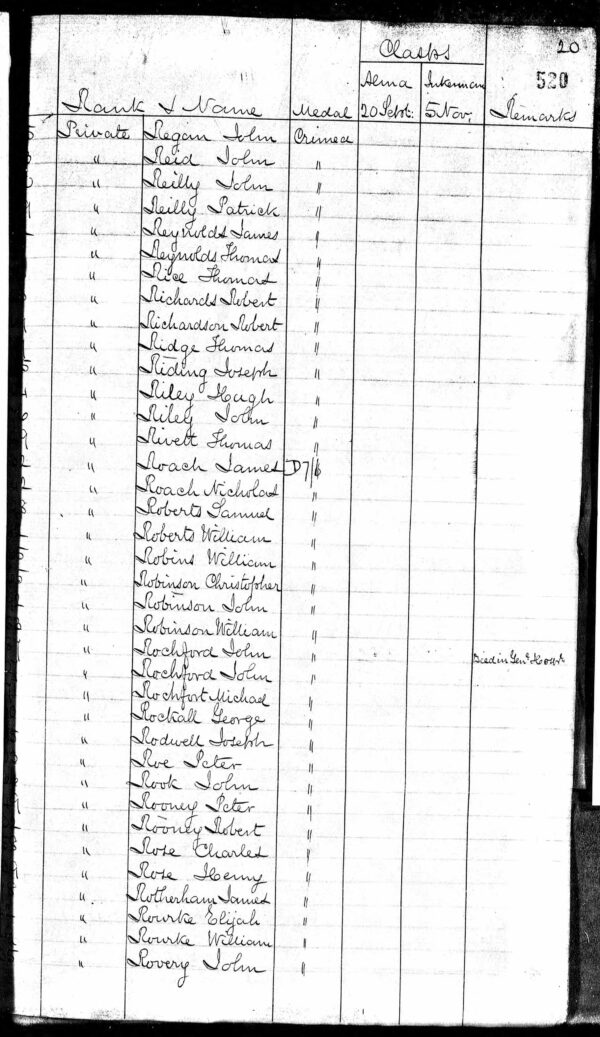 20
Clasps
520
Alma Inkerman
Rank & Name Medal 20 Sept: 5 Nov, Remarks
Private Regan John Crimea
" Reid John "
" Reilly John "
" Reilly Patrick "
" Reynolds James "
" Reynolds Thomas "
" Rice Thomas "
" Richards Robert "
" Richardson Robert "
" Ridge Thomas "
" Riding Joseph "
" Riley Hugh "
" Riley John "
" Rivett Thomas "
" Roach James D 7/6
" Roach Nicholas "
" Roberts Samuel "
" Roberts William "
" Robins William "
" Robinson Christopher "
" Robinson John "
" Robinson William "
" Rochford John " Died in Genl Hospt
" Rochford John "
" Rochfort Michael "
" Rockall George "
" Rodwell Joseph "
" Roe Peter "
" Rook John "
" Rooney Peter "
" Rooney Robert "
" Rose Charles "
" Rose Henry "
" Rotherham James "
" Rourke Elijah "
" Rourke William "
" Rovery John "